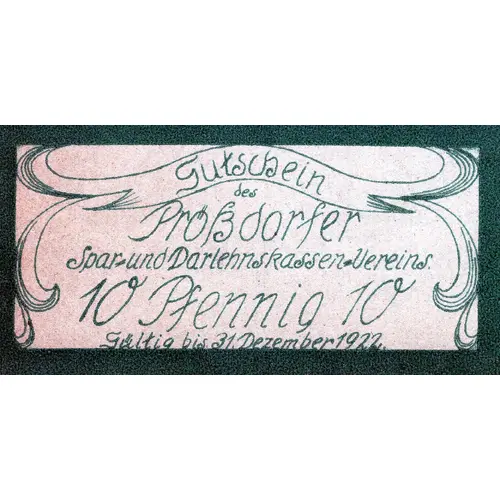 Gutschein
des
Prößdorfer
Spar- und Darlehnskassen-Vereins.
10 Pfennig 10
Gültig bis 31. Dezember 1922.